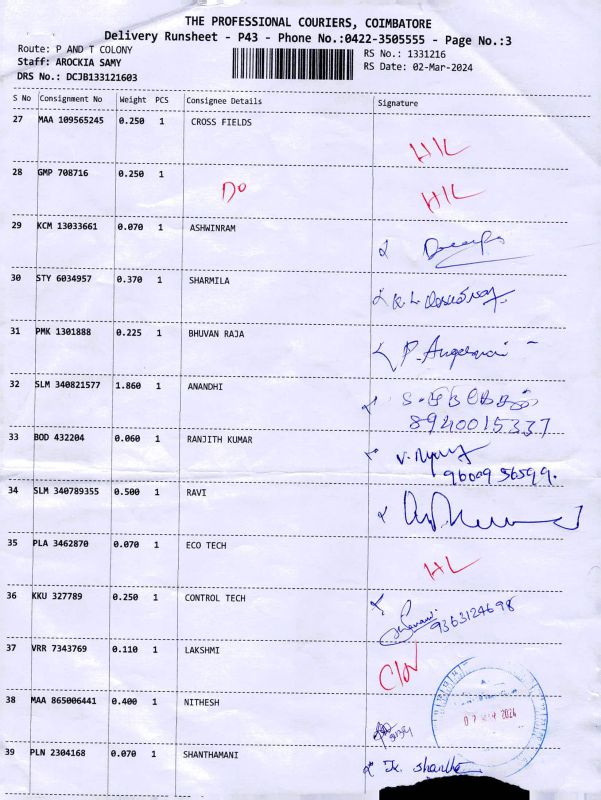 THE PROFESSIONAL COURIERS, COIMBATORE
Delivery Runsheet - P43 - Phone No.:0422-3505555 - Page No.:3
Route: P AND T COLONY
RS No.: 1331216
Staff: AROCKIA SAMY
RS Date: 02-Mar-2024
DRS No.: DCJB133121603
S No Consignment No Weight PCS Consignee Details Signature
27 MAA 109565245 0.250 1 CROSS FIELDS
H/L
28 GMP 708716 0.250 1
Do H/L
29 KCM 13033661 0.070 1 ASHWINRAM
30 STY 6034957 0.370 1 SHARMILA
31 PMK 1301888 0.225 1 BHUVAN RAJA
32 SLM 340821577 1.860 1 ANANDHI
8940015337
33 BOD 432204 0.060 1 RANJITH KUMAR
96009 56599.
34 SLM 340789355 0.500 1 RAVI
35 PLA 3462870 0.070 1 ECO TECH
H/L
36 KKU 327789 0.250 1 CONTROL TECH
9363124698
37 VRR 7343769 0.110 1 LAKSHMI
38 MAA 865006441 0.400 1 NITHESH
39 PLN 2304168 0.070 1 SHANTHAMANI